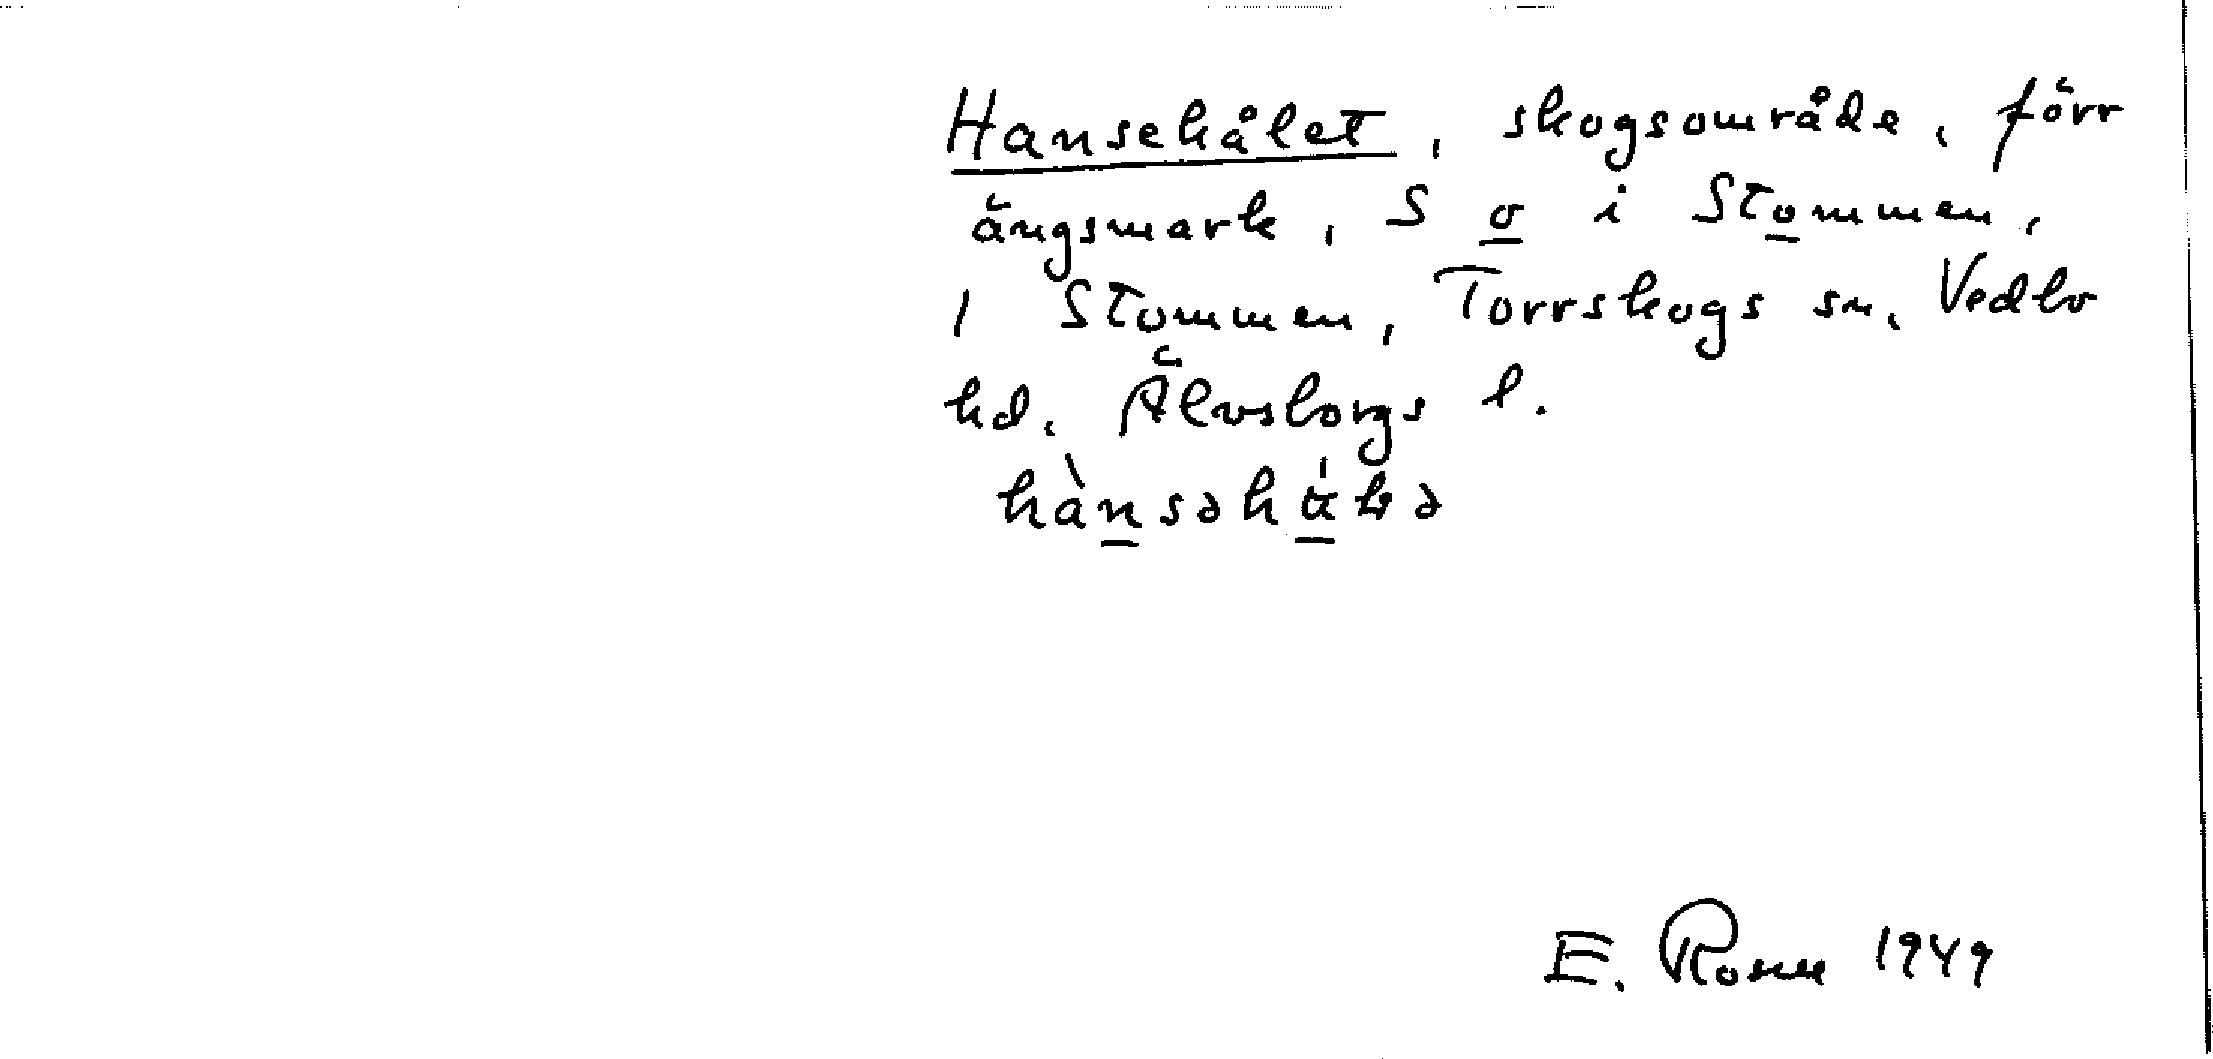 Hansehålet, skogsområde, förr
ängsmark, S o i Stommen,
1 Stommen, Torrskogs sn, Vedbo
hd, Älvsborgs l.
E. Rosell 1949